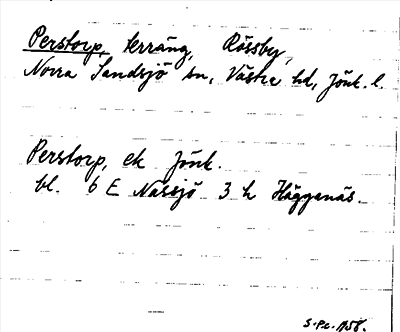 Perstorp, terräng, Rössby,
Norra Sandsjö sn, Västra hd, Jönk. l.
Perstorp, ek Jönk.
bl. 6 E Nässjö 3 h Hägganäs
S.Pc. 1958.